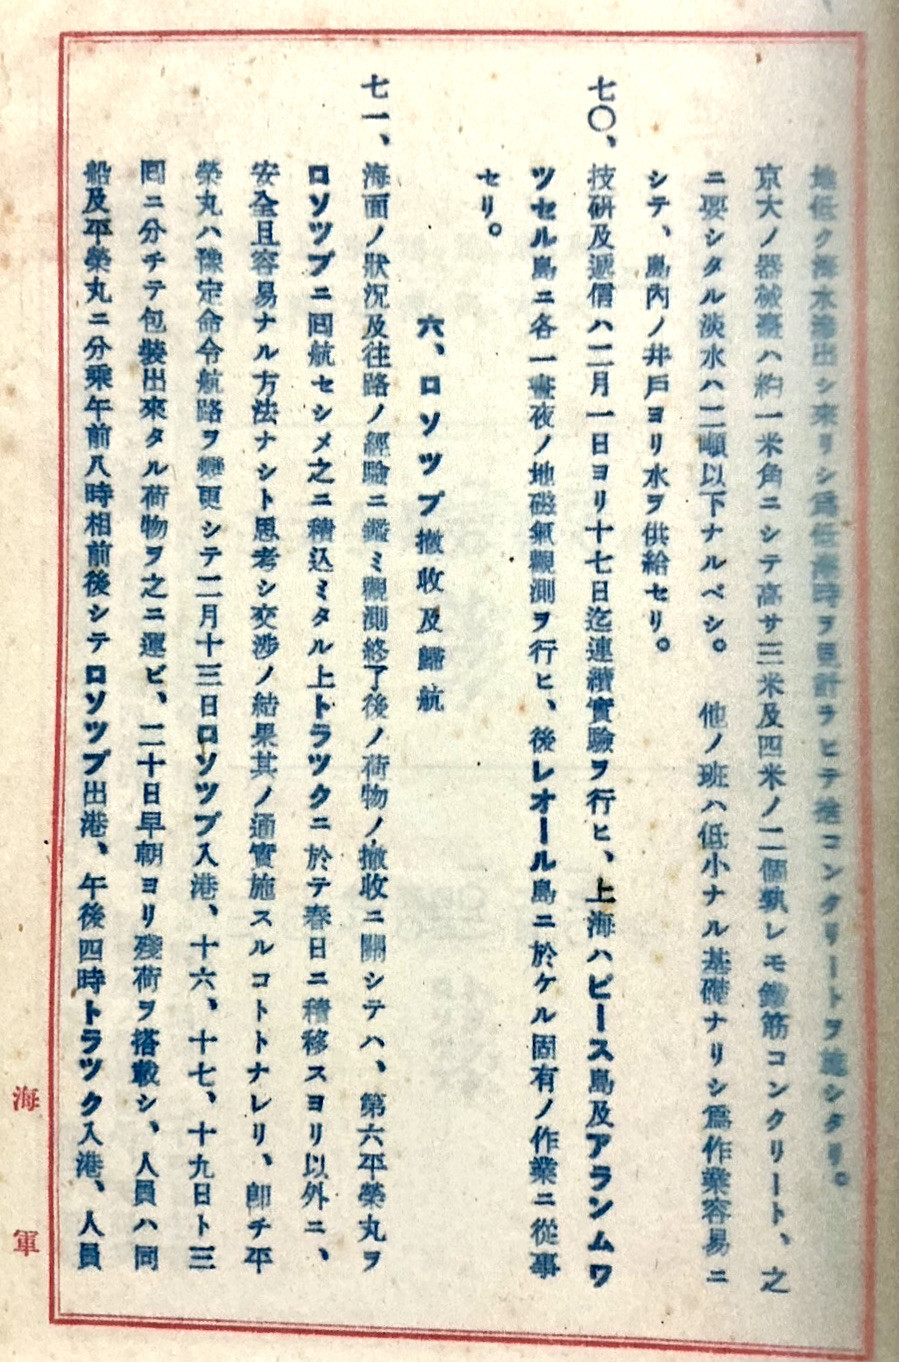 地低ク海水滲出シ來リシ爲低潮時ヲ見計ラヒテ速コンクリートヲ施シタリ。
京大ノ器械臺ハ約一米角ニシテ高サ三米及四米ノ二個孰レモ鐵筋コンクリート、之
ニ要シタル淡水ハ二噸以下ナルベシ。 他ノ班ハ低小ナル基礎ナリシ爲作業容易ニ
シテ、島內ノ井戶ヨリ水ヲ供給セリ。
七〇、技硏及遞信ハ二月一日ヨリ十七日迄連續實驗ヲ行ヒ、上海ハピース島及アランムワ
ツセル島ニ各一晝夜ノ地磁氣觀測ヲ行ヒ、後レオール島ニ於ケル固有ノ作業ニ從事
セリ。
六、ロソツプ撤收及歸航
七一、海面ノ狀況及往路ノ經驗ニ鑑ミ觀測終了後ノ荷物ノ撤收ニ關シテハ、第六平榮丸ヲ
ロソツプニ囘航セシメ之ニ積込ミタル上トラツクニ於テ春日ニ積移スヨリ以外ニ、
安全且容易ナル方法ナシト思考シ交涉ノ結果其ノ通實施スルコトトナレリ、卽チ平
榮丸ハ豫定命令航路ヲ變更シテ二月十三日ロソツプ入港、十六、十七、十九日ト三
囘ニ分チテ包裝出來タル荷物ヲ之ニ運ビ、二十日早朝ヨリ殘荷ヲ搭載シ、人員ハ同
船及平榮丸ニ分乘午前八時相前後シテロソツプ出港、午後四時トラツク入港、人員
海軍